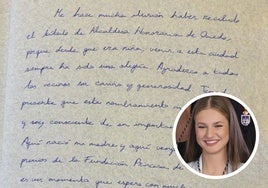 Me hace mucha ilusión haber recibido
el título de Alcaldesa Honoraria de Oviedo,
porque desde que era niña, venir a esta ciudad
siempre ha sido una alegría. Agradezco a todos
los vecinos su cariño y generosidad.
presente que este nombramiento
y soy consciente de su importancia
Aquí nació mi madre y aquí
premios de la Fundación Princesa de
es un momento que espero con mucha